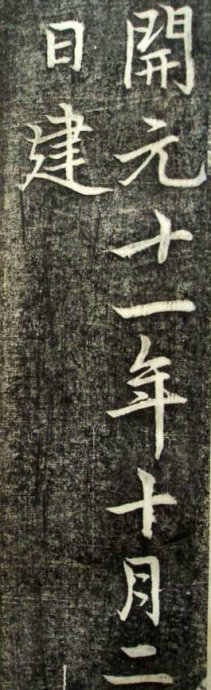 開元十一年十月二
日建